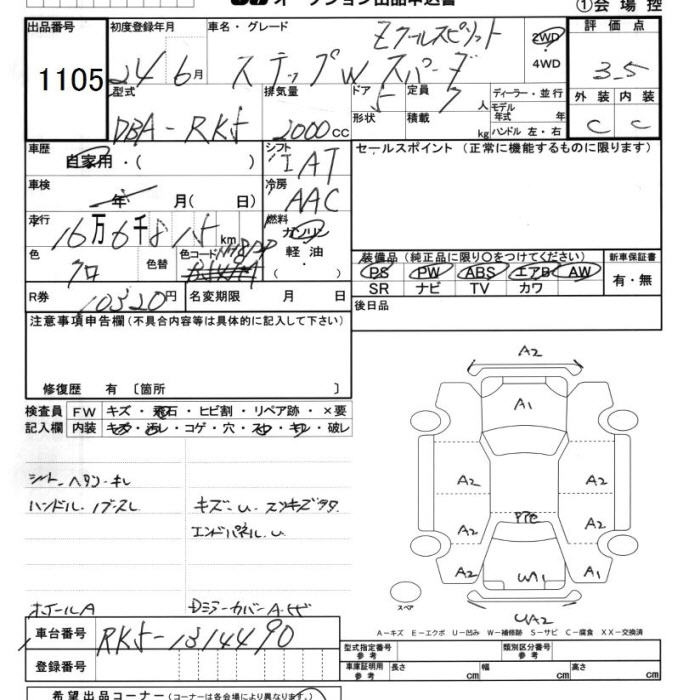 オークション出品申込書
①会場控
出品番号 初度登録年月 車名・グレード Zクールスピリット 2WD 評価点
1105 24 6月 ステップW スパーダ 4WD 3.5
型式 排気量 ドア 5 定員 7 人 ディーラー・並行 外装 内装
DBA-RK5 2000cc 形状 積載 kg モデル年式 年 ハンドル 左・右 C C
車歴 自家用・( ) シフト IAT セールスポイント (正常に機能するものに限ります)
車検 年 月( 日) 冷房 AAC
走行 16万6千815km 燃料 ガソリン
色 クロ 色替 色コード NH8PP 軽油 ( )
装備品 (純正品に限り○をつけてください) 新車保証書
PS PW ABS エアB AW 有・無
SR ナビ TV カワ
R券 10320円 名変期限 月 日 後日品
注意事項申告欄 (不具合内容等は具体的に記入して下さい)
修復歴 有 〔箇所 〕
検査員 FW キズ・飛石・ヒビ割・リペア跡・×要
記入欄 内装 キズ・汚レ・コゲ・穴・スレ・キレ・破レ
シート ヘタリ・キレ
ハンドル・ノブスレ キズ・U・スリキズ
エンドパネル・U
ホイールA
A2
A1
A2 A2
A2 PPC A2
A2 A1
UA2
スペア
A-キズ E-エクボ U-凹み W-補修跡 S-サビ C-腐食 XX-交換済
車台番号 RK5-1314490
登録番号
型式指定番号 参考 類別区分番号 参考
車庫証明用 参考 長さ cm 幅 cm 高さ cm
希望出品コーナー (コーナーは各会場により異なります。)